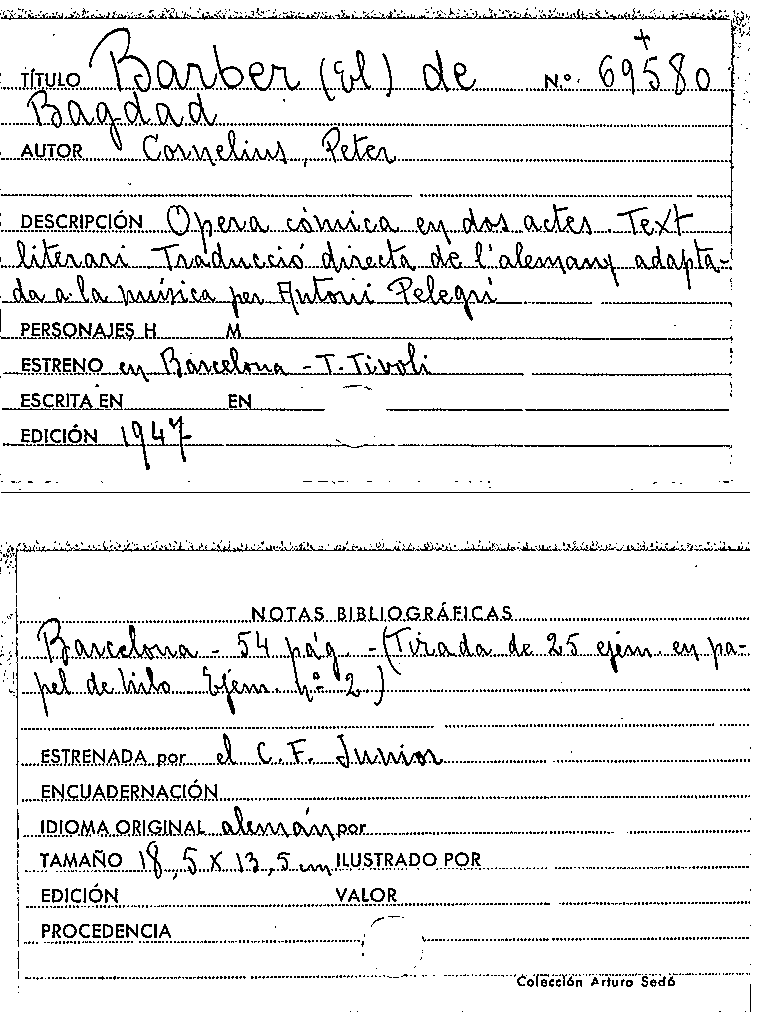 TÍTULO Barber (El) de Nº. 69580
+
Bagdad
AUTOR Cornelius, Peter
DESCRIPCIÓN Opera còmica en dos actes. Text
literari Traducció directa de l'alemany adapta-
da a la música per Antoni Pelegrí
PERSONAJES H M
ESTRENO en Barcelona - T. Tivoli
ESCRITA EN EN
EDICIÓN 1947
NOTAS BIBLIOGRÁFICAS
Barcelona - 54 pág. - (Tirada de 25 ejem. en pa-
pel de hilo Ejem. nº 2.)
ESTRENADA por el C. F. Junior
ENCUADERNACIÓN
IDIOMA ORIGINAL alemán por
TAMAÑO 18,5 X 13,5 cm ILUSTRADO POR
EDICIÓN VALOR
PROCEDENCIA
Colección Arturo Sedó